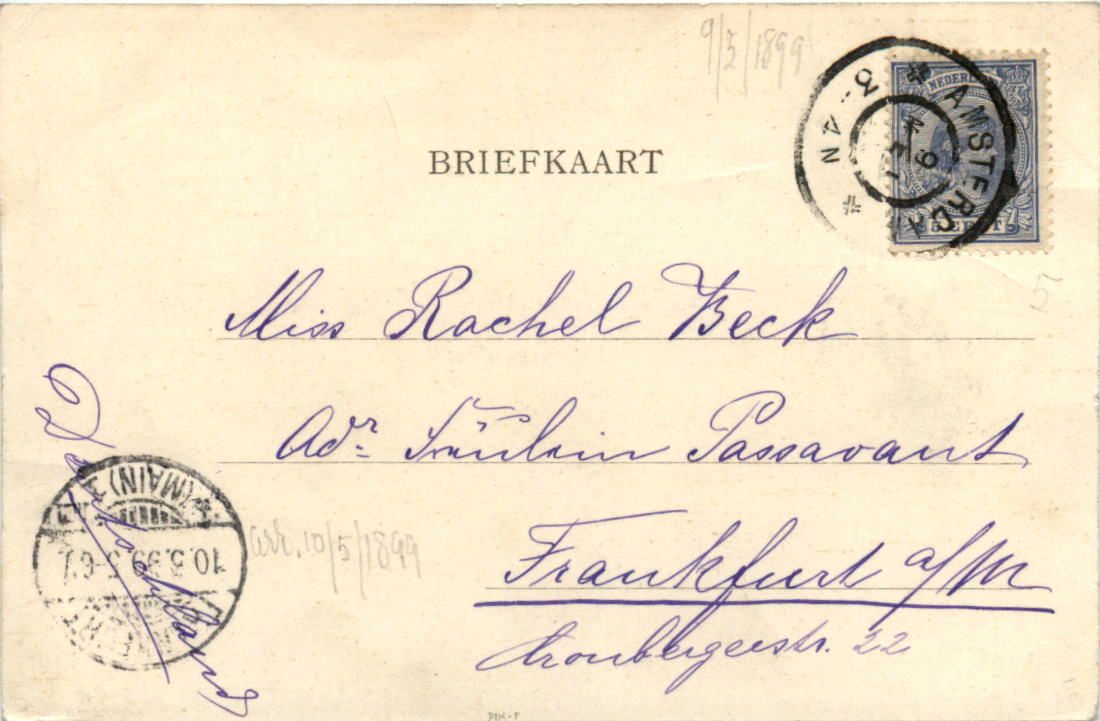 9/5/1899
NEDERLAND
AMSTERDAM
3-4N
BRIEFKAART
5
Miss Rachel Beck
Adr. Fräulein Passavant
Frankfurt a/M
Cronbergerstr. 22
(MAIN)
10.5.99
arr. 10/5/1899